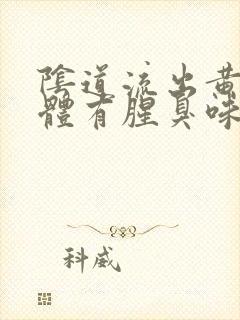 陰道流出黃
體有腥臭味
科威